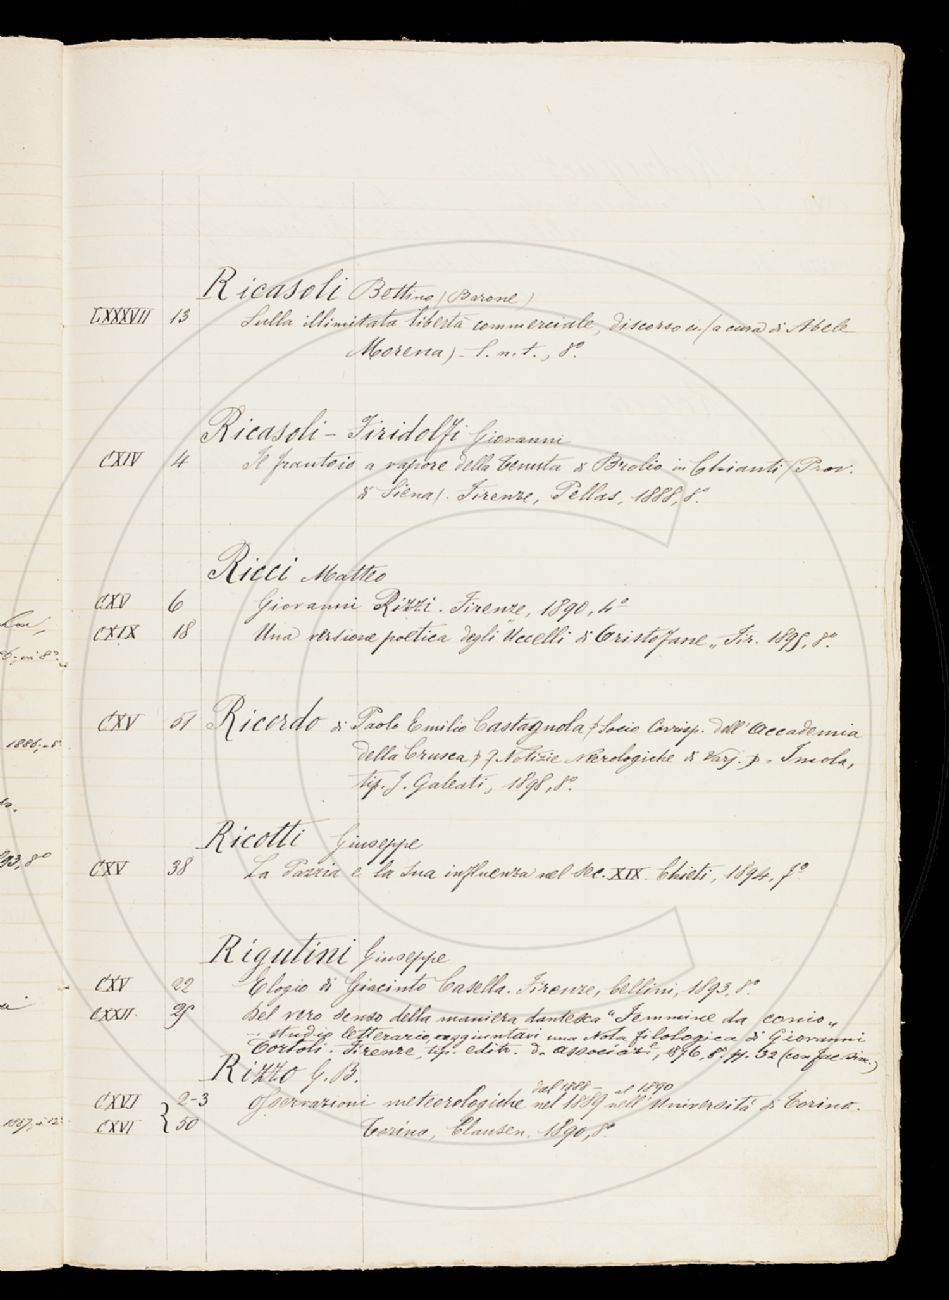 Ricasoli Bettino (Barone)
LXXXVII 13 Sulla illimitata libertà commerciale, discorso ec. (a cura di Abele
Morena) - S. n. t., 8°.
Ricasoli - Firidolfi Giovanni
CXIV 4 Il frantoio a vapore della tenuta di Brolio in Chianti (Prov.
di Siena). Firenze, Pellas, 1888, 8°.
Ricci Matteo
CXV 6 Giovanni Rizzi. Firenze, 1890, 4°
CXIX 18 Una versione poetica degli "Uccelli di Aristofane„ Fir. 1895, 8°.
CXV 51 Ricordo di Paolo Emilio Castagnola, Socio Corrisp. dell'Accademia
della Crusca Notizie Necrologiche di - Imola,
tip. I. Galeati, 1898, 8°.
Ricotti Giuseppe
CXV 38 La Pazzia e la sua influenza nel sec. XIX. Chieti, 1894, 8°.
Rigutini Giuseppe
CXV 22 Elogio di Giacinto Casella. Firenze, Cellini, 1893, 8°.
CXXII. 29 Del vero senso della maniera dantesca "Femmine da conio„
- studio letterario, aggiuntavi una Nota filologica di Giovanni
Tortoli. Firenze, tip. editr. d. Associaz., 1876, 8°, pp. 32 (con fac sim.)
Rizzo G. B.
dal 1888 - al 1890
CXVI 2-3 Osservazioni meteorologiche nel 1889 nell'Università di Torino.
CXVI 50 Torino, Clausen. 1890, 8°
1886, 8°
93, 8°